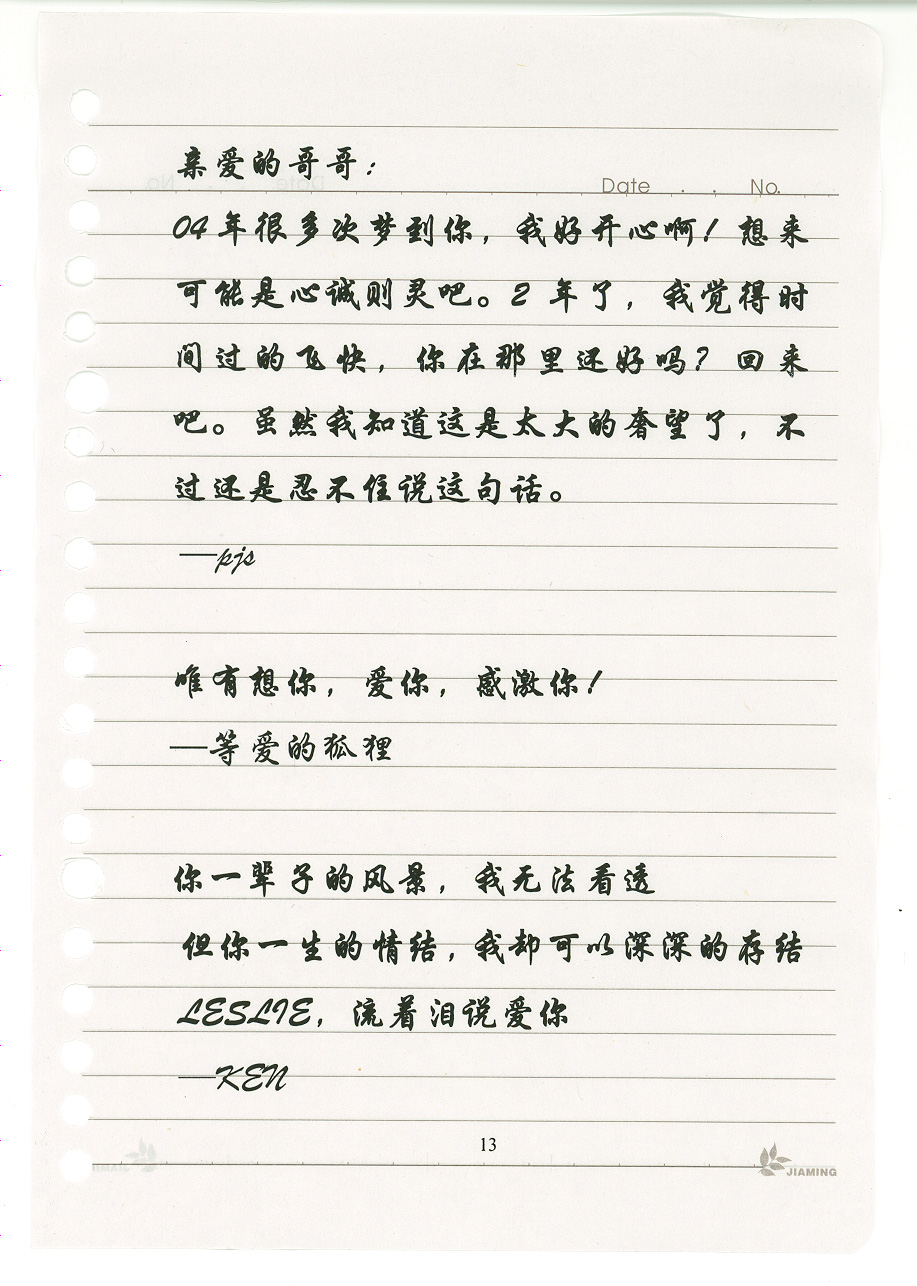 亲爱的哥哥：
Date . . No.
04年很多次梦到你，我好开心啊！想来
可能是心诚则灵吧。2 年了，我觉得时
间过的飞快，你在那里还好吗？回来
吧。虽然我知道这是太大的奢望了，不
过还是忍不住说这句话。
—pjs
唯有想你，爱你，感激你！
—等爱的狐狸
你一辈子的风景，我无法看透
但你一生的情结，我却可以深深的存结
LESLIE，流着泪说爱你
—KEN
13
JIAMING